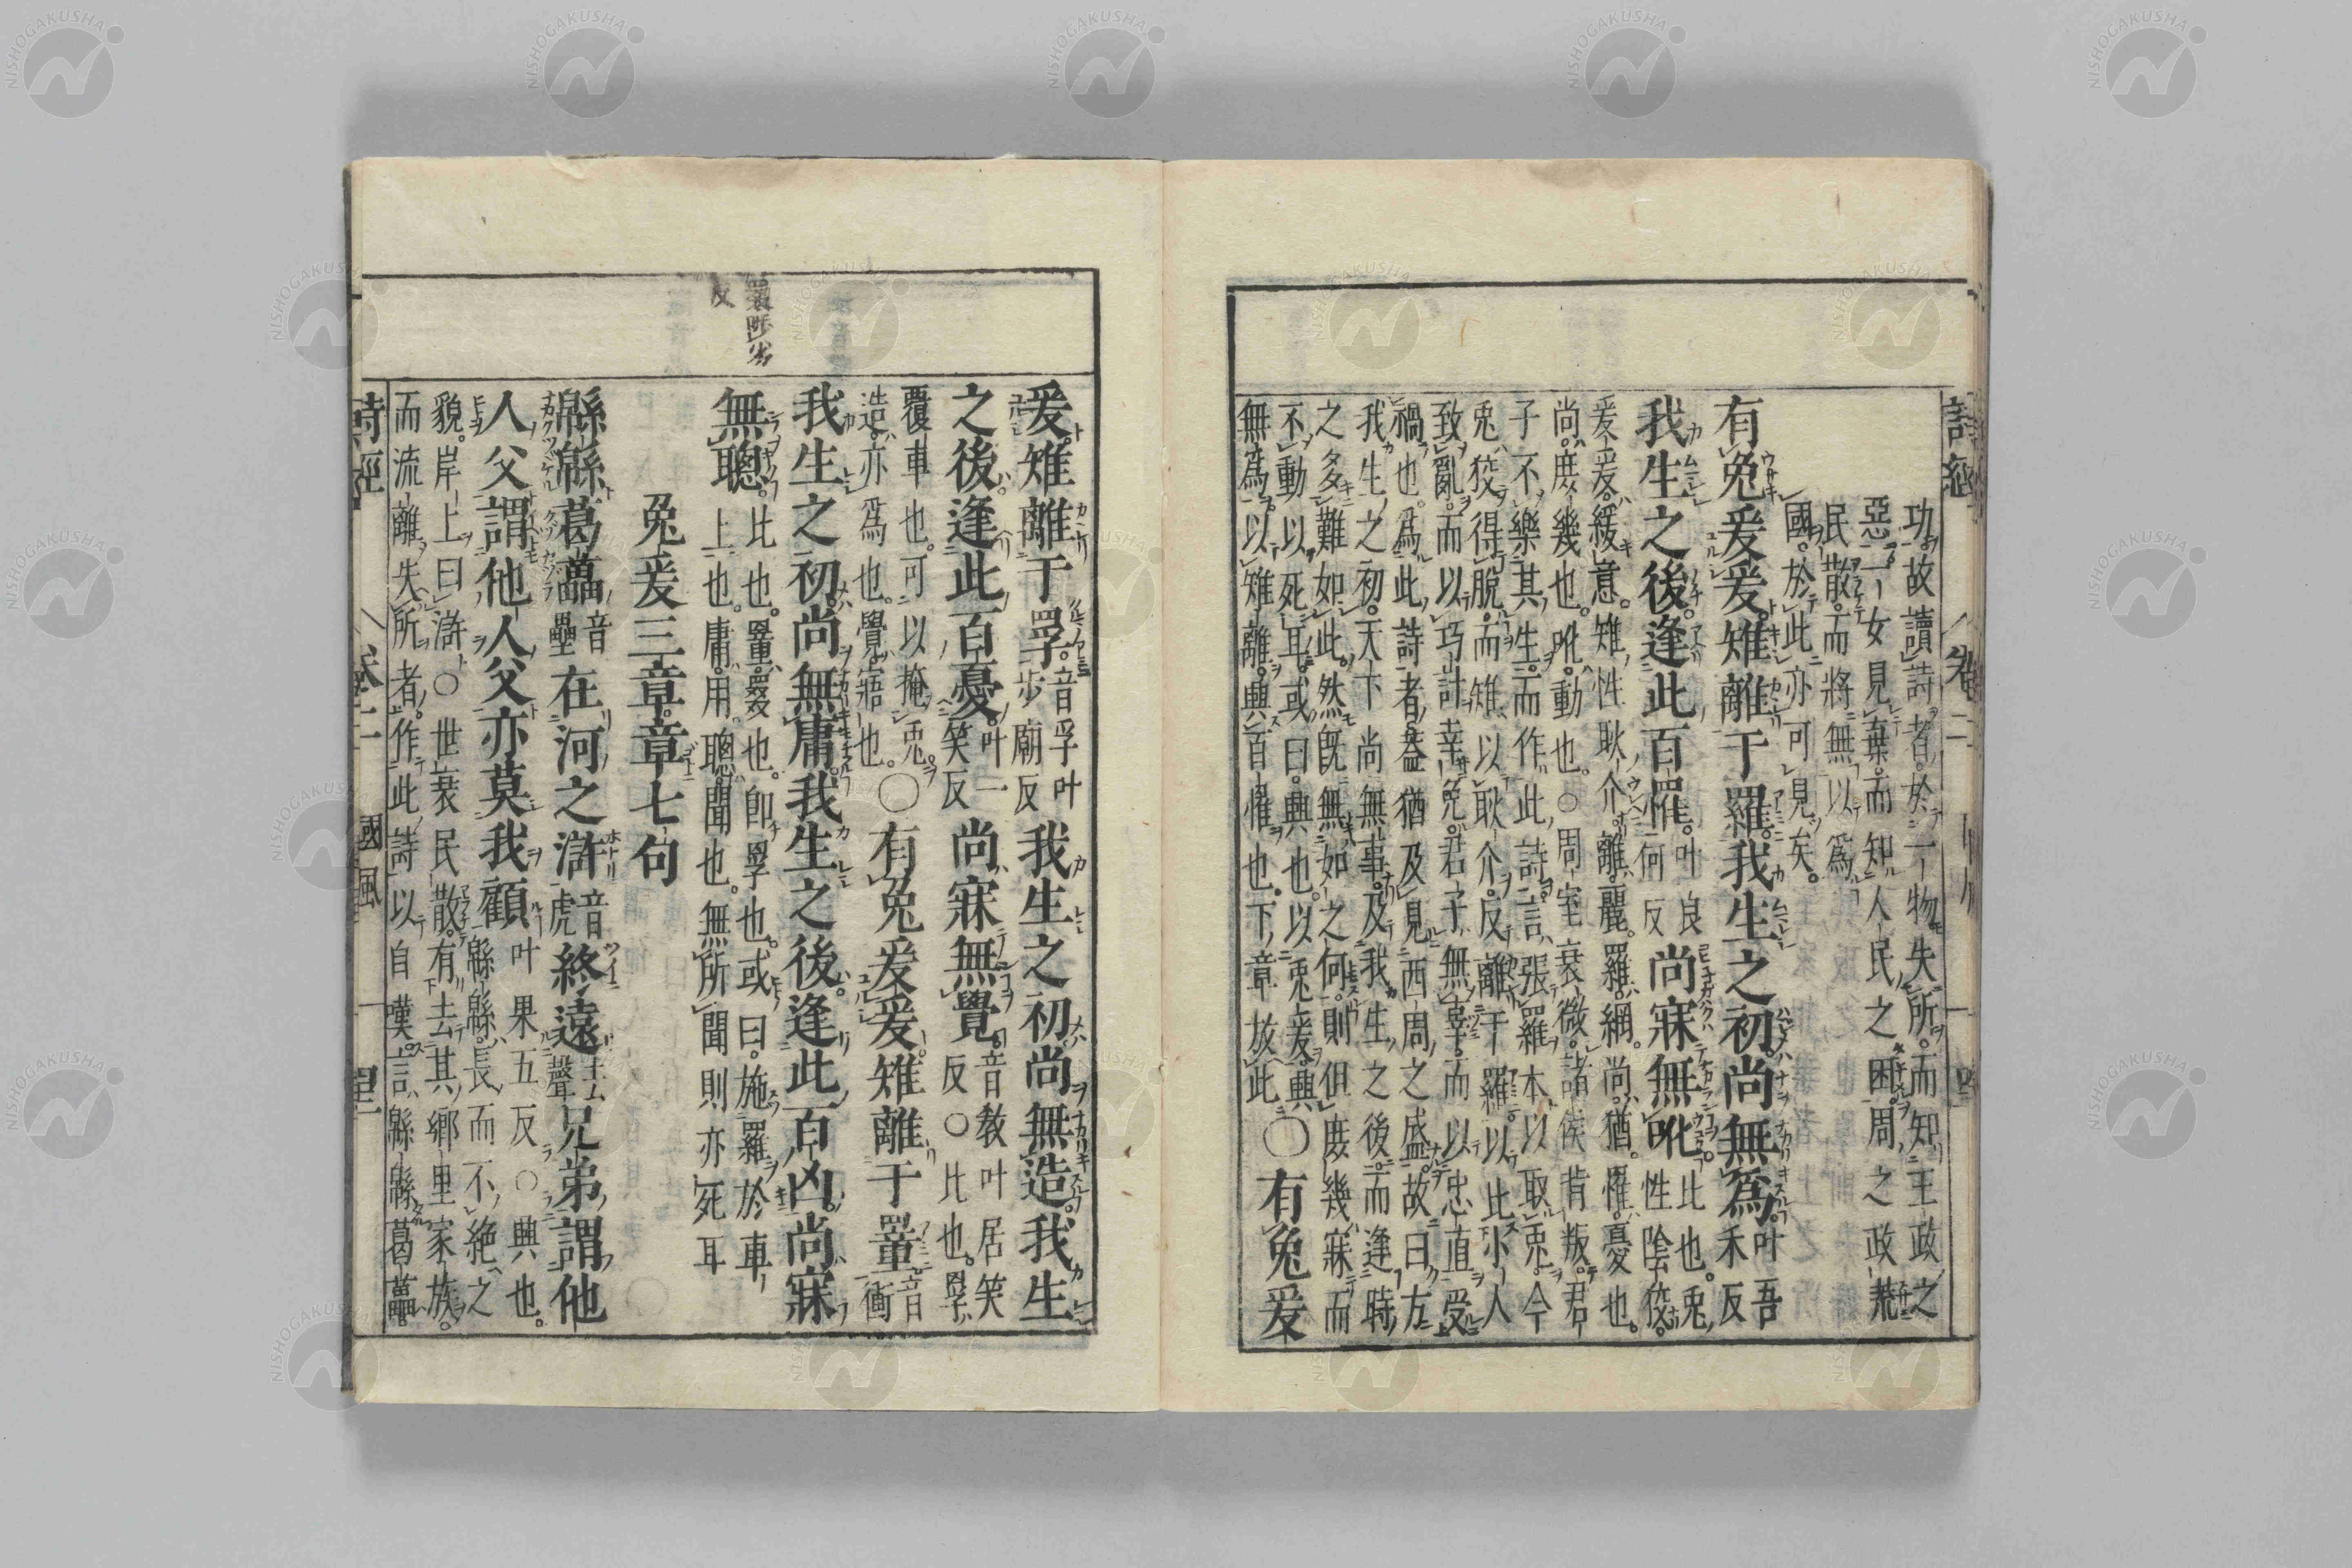 功故讀詩者於一物失所而知王政之
惡一女見棄而知人民之困周之政荒
民散而將無以爲
國於此亦可見矣
有兔爰爰雉離于羅我生之初尚無爲叶吾禾反
我生之後逢此百罹叶良何反尚寐無吪比也兔性陰狡
爰爰緩意雉性耿介離麗羅網尚猶罹憂也
尚庶幾也吪動也○周室衰微諸侯背叛君
子不樂其生而作此詩言張羅本以取兔今
兔狡得脫而雉以耿介反離于羅以此小人
致亂而以巧計幸免君子無辜而以忠直受
禍也爲此詩者蓋猶及見西周之盛故曰方
我生之初天下尚無事及我生之後而逢時
之多難如此然既無如之何則但庶幾寐而
不動以死耳或曰興也以兔爰興
無爲以雉離興百罹也下章放此○有兔爰
爰雉離于罦音孚叶步廟反我生之初尚無造我生
之後逢此百憂叶一笑反尚寐無覺音教叶居笑反○比也罦
覆車也可以掩兔
造亦爲也覺寤也○有兔爰爰雉離于罿音衝
我生之初尚無庸我生之後逢此百凶尚寐
無聰比也罿罬也卽罦也或曰施羅於車
上也庸用聰聞也無所聞則亦死耳
兔爰三章章七句
緜緜葛藟音壘在河之滸音虎終遠去聲兄弟謂他
人父謂他人父亦莫我顧叶果五反○興也緜緜長而不絶之
貌岸上曰滸○世衰民散有去其鄉里家族
而流離失所者作此詩以自嘆言緜緜葛藟
詩經
卷二
國風
詩經
卷二
NISHOGAKUSHA